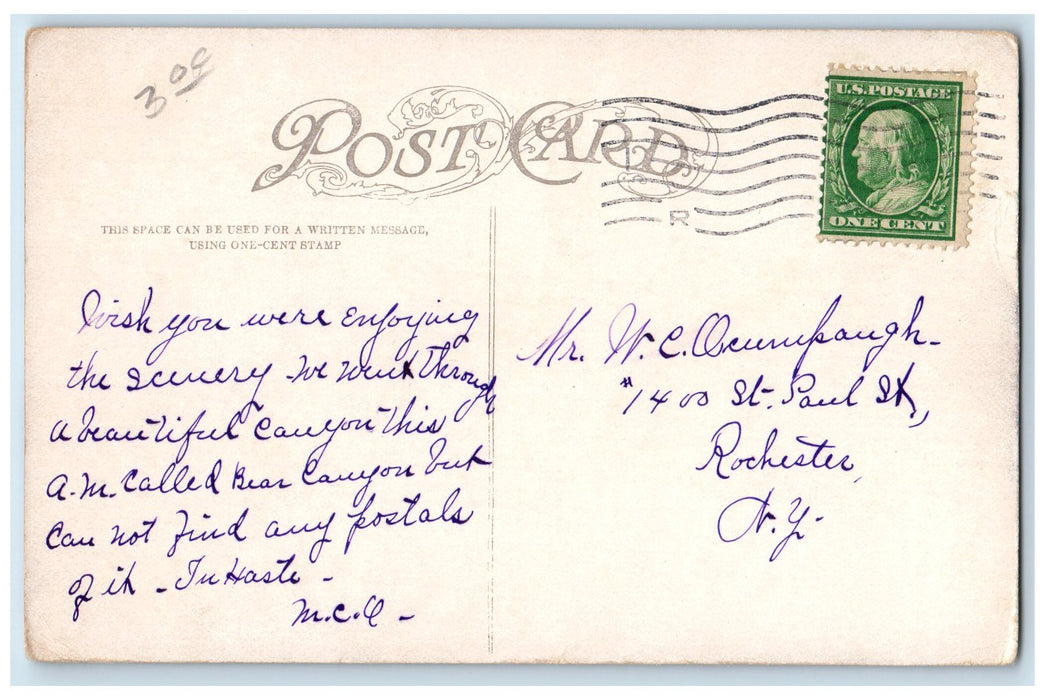 3 00
POST CARD
U.S. POSTAGE
ONE CENT
R
THIS SPACE CAN BE USED FOR A WRITTEN MESSAGE,
USING ONE-CENT STAMP
Wish you were enjoying
the scenery - We went through
a beautiful canyon this
A.M. called Bear Canyon but
can not find any postals
of it - In Haste -
M.C.O -
Mr. W. C. Ocumpaugh -
#1400 St. Paul St.,
Rochester,
N.Y. -